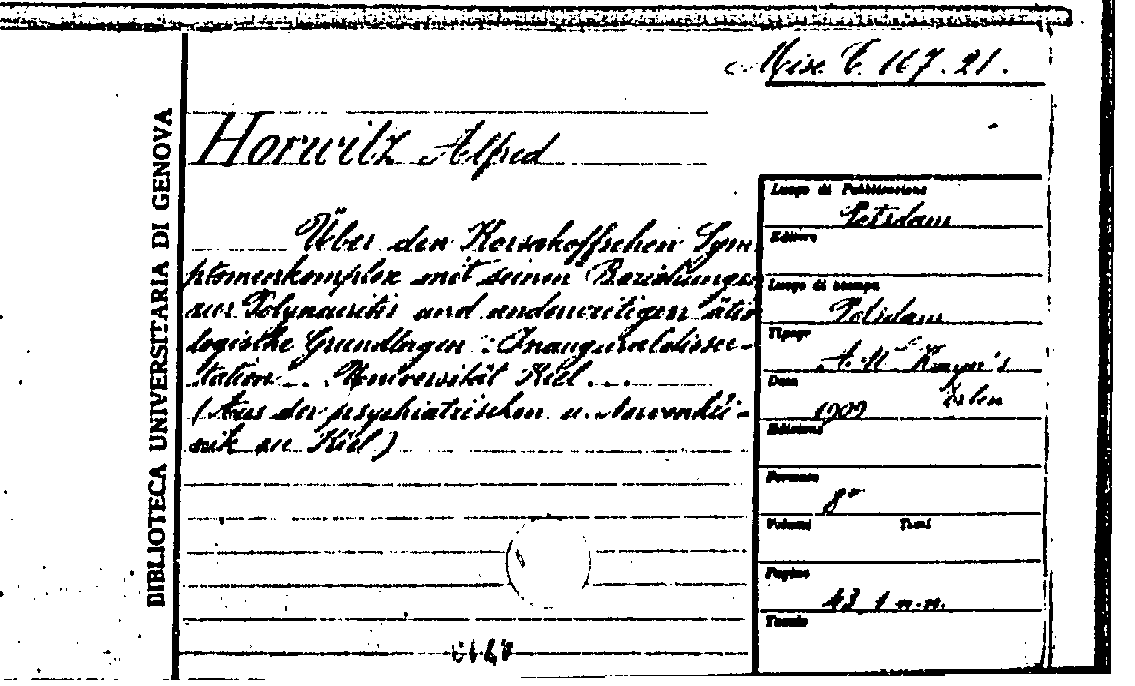 Misc. C. 107.21.
BIBLIOTECA UNIVERSITARIA DI GENOVA
Horwitz Alfred
Über den Korsakoffschen Sym
ptomenkomplex mit seinen Beziehungen
zur Polyneuritis und anderweitigen ätio
logische Grundlagen : Inauguraldisser-
tation... Universität Kiel...
(Aus der psychiatrischen u. Nervenkli-
nik zu Kiel)
Luogo di Pubblicazione
Potsdam
Editore
Luogo di stampa
Potsdam
Tipogr
A. W. Hayn's
Erben
Data
1909
Edizione
Formato
8°
Volumi Tomi
Pagine
43 1 n.n.
Tavole